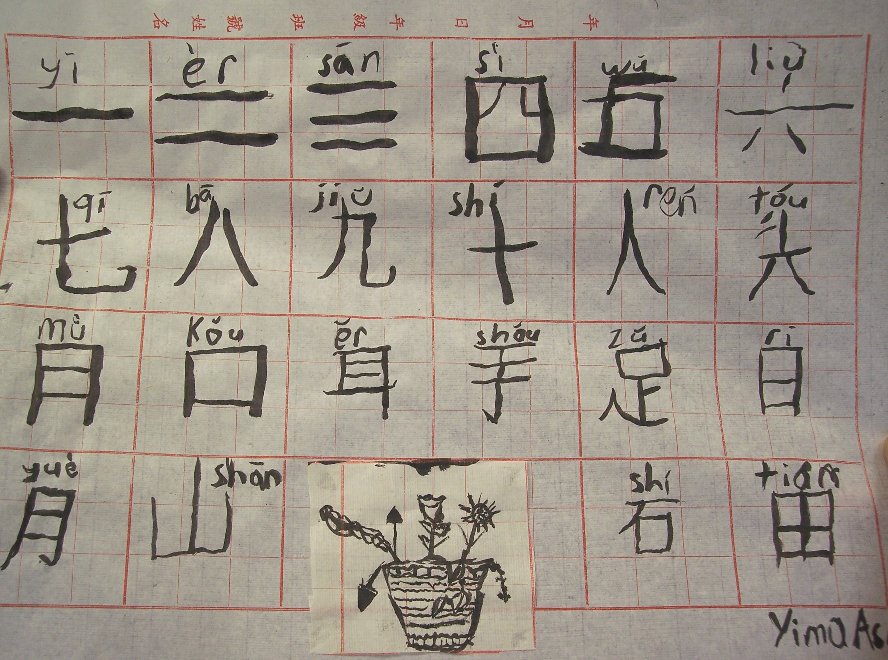 年 月 日 年級 班 號 姓名
yī èr sān sì wǔ liù
一 二 三 四 五 六
qī bā jiǔ shí rén tóu
七 八 九 十 人 头
mù kǒu ěr shǒu zú rì
目 口 耳 手 足 日
yuè shān shí tián
月 山 石 田
Yimu As